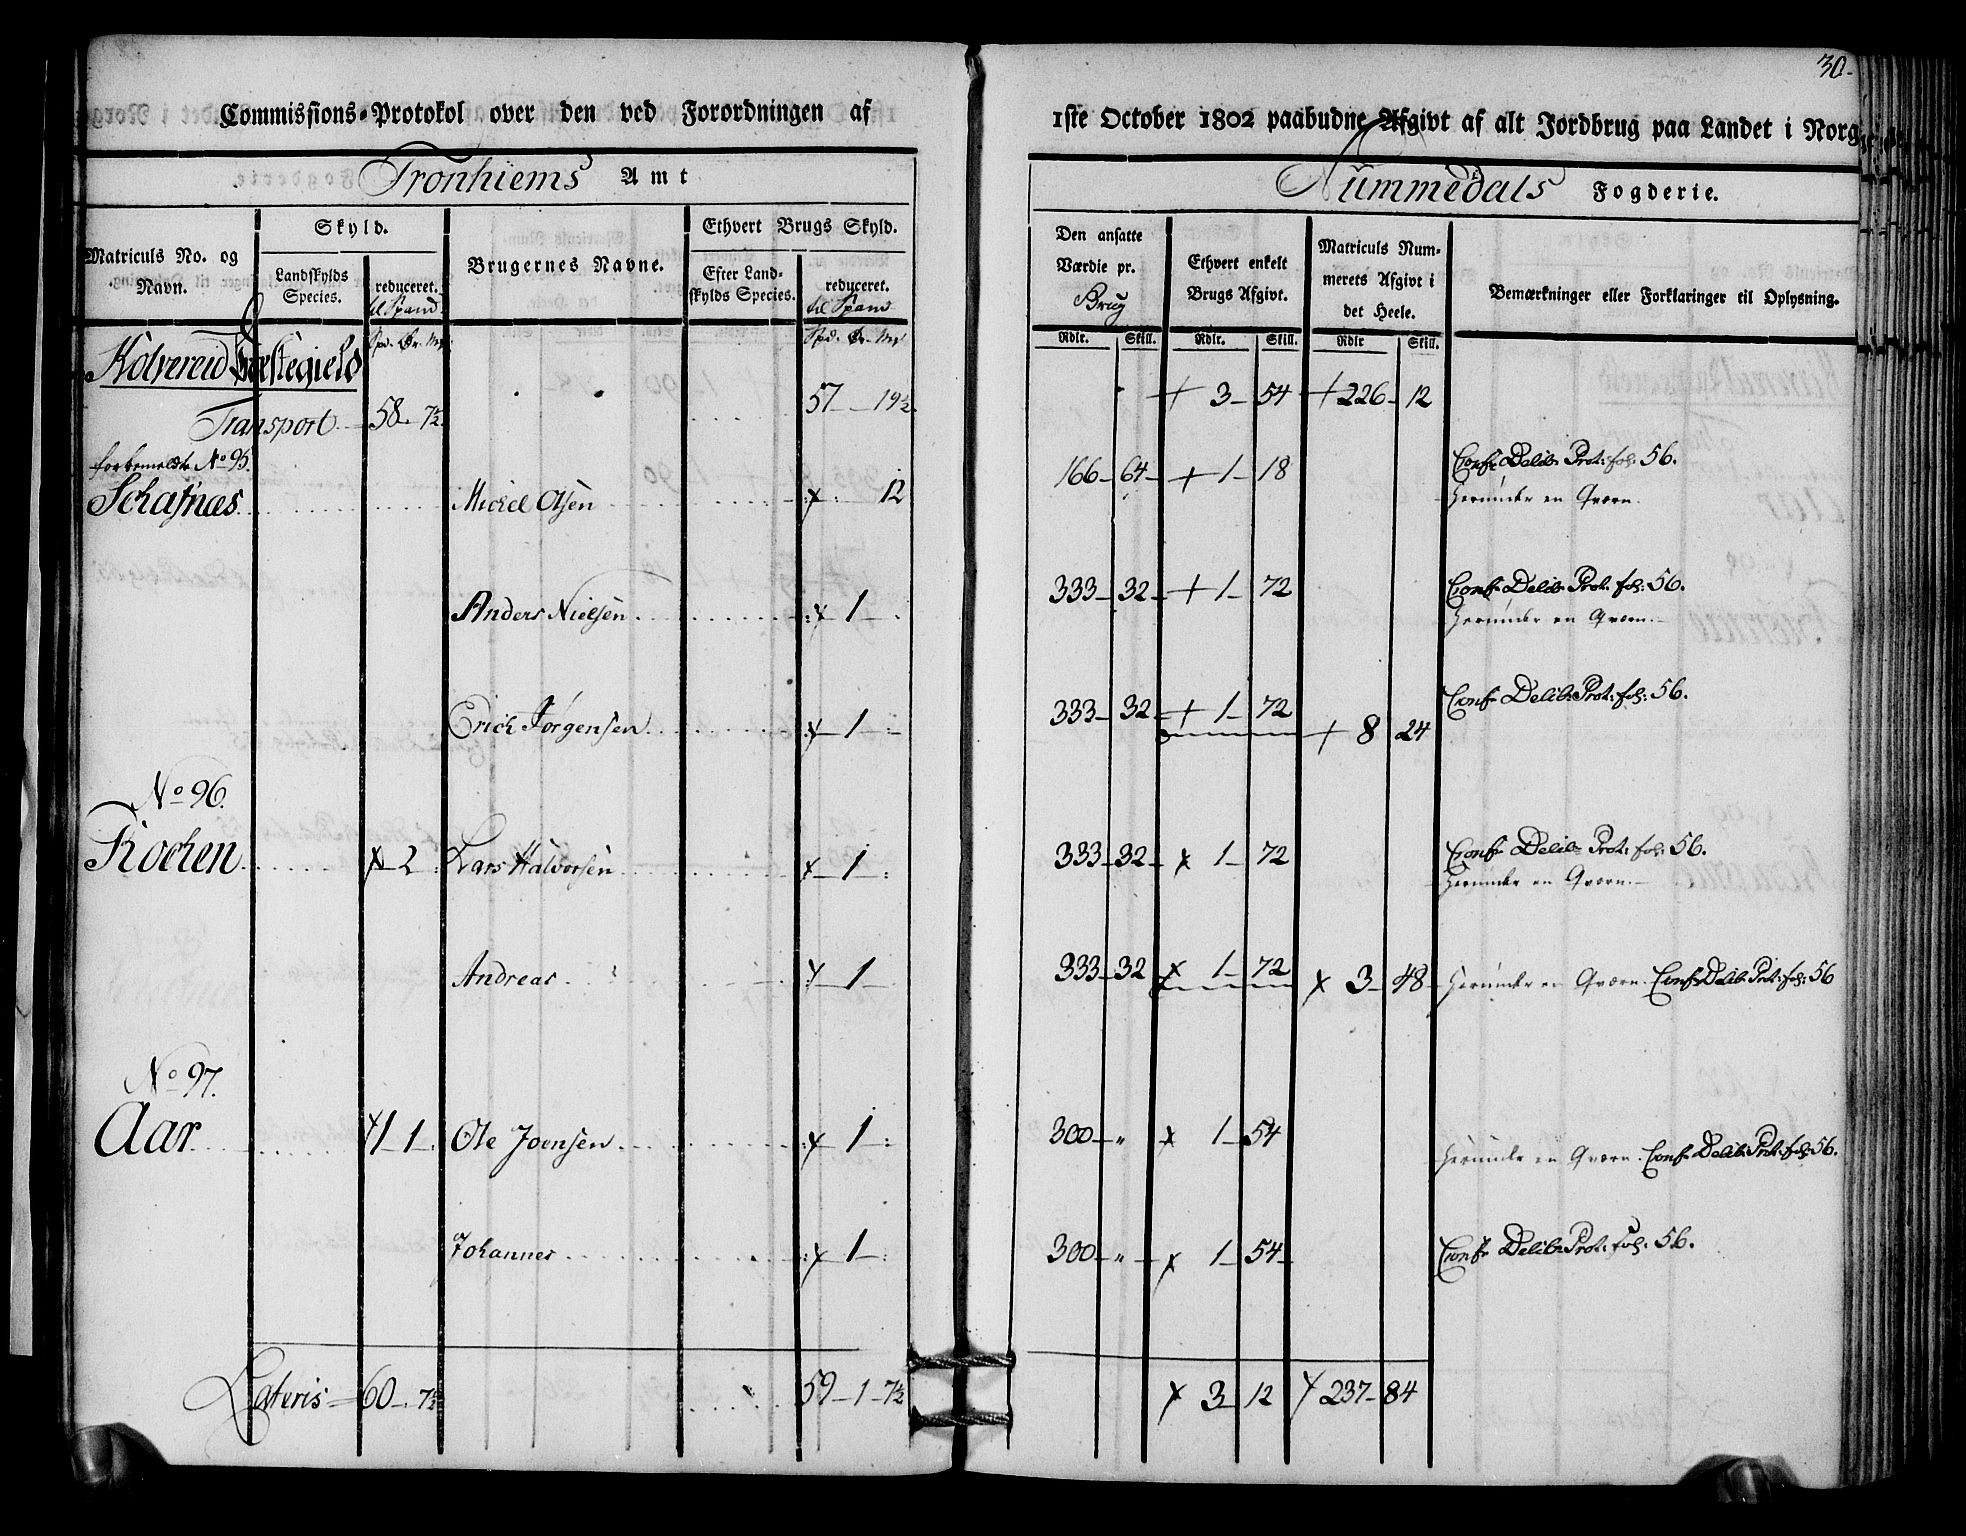 30.
Commissions-Protokol over den ved Forordningen af 1ste October 1802 paabudne Afgivt af alt Jordbrug paa Landet i Norge
Tronhiems Amt
Nummedals Fogderie.
Matriculs No. og Navn.
Skyld.
Landskylds Species.
reduceret. til Spand
Brugernes Navne.
Ethvert Brugs Skyld.
Efter Landskylds Species.
reduceret. til Spand
Den ansatte Værdie pr. Brug
Ethvert enkelt Brugs Afgivt.
Matriculs Nummerets Afgivt i det Heele.
Bemærkninger eller Forklaringer til Oplysning.
Spd. Ør. Mk Spd. Ør. Mk Rdlr. Skill. Rdlr. Skill. Rdlr Skill.
Kolvereid Præstegield
Transport 58 . 7½ 57 - 19½ + 3 - 54 + 226 - 12
forbemeldte No 95.
Schafnæs Michel Olsen 12 166 - 64 + 1 - 18 Conf. Delib. Prot: fol: 56.
herunder en Qværn.
Anders Nielsen 1 333 - 32 + 1 - 72 Conf. Delib. Prot: fol: 56.
herunder en Qværn.
Erich Jørgensen 1 333 - 32 + 1 - 72 + 8 24 Conf. Delib. Prot: fol: 56.
No 96.
Kochen x 2 Lars Halvorsen x 1 333 - 32 x 1 - 72 Conf. Delib. Prot: fol: 56.
herunder en Qværn.
Andreas x 1 333 - 32 x 1 - 72 x 3 - 48 herunder en Qværn. Conf. Delib. Prot: fol: 56
No 97.
Aar x 1 - 1 Ole Joensen x 1 300 - " x 1 - 54 herunder en Qværn. Conf. Delib. Prot: fol: 56.
Johannes x 1 300 - " x 1 - 54 Conf. Delib. Prot: fol: 56.
Lateris 60 - . 7½ 59 - 1 - 7½ x 3 - 12 x 237 - 84